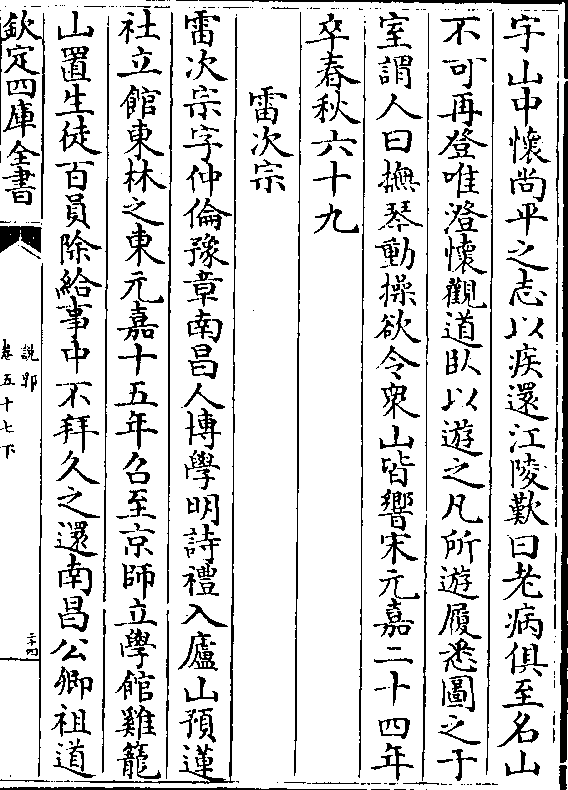 字山中懷尚平之志以疾還江陵歎曰老病俱至名山
不可再登唯澄懷觀道臥以遊之凡所遊履悉圖之于
室謂人曰撫琴動操欲令衆山皆響宋元嘉二十四年
卒春秋六十九
雷次宗
雷次宗字仲倫豫章南昌人博學明詩禮入廬山預蓮
社立館東林之東元嘉十五年召至京師立學館雞籠
山置生徒百員除給事中不拜久之還南昌公卿祖道
欽定四庫全書
說郛
卷五十七下
二十四